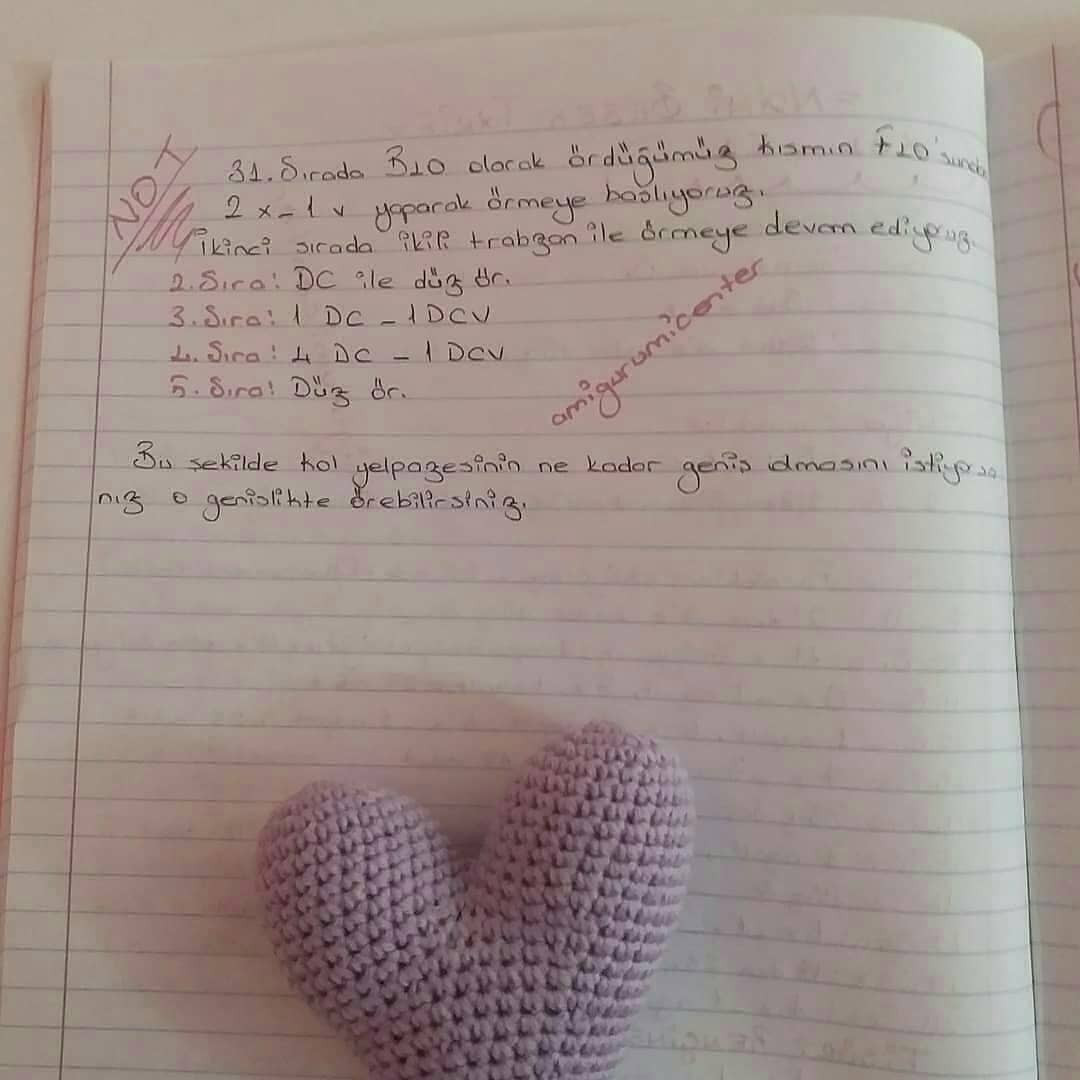 NOT
31. Sırada BLO olarak ördüğümüz kısmın FLO'sundan
2 x - 1 v yaparak örmeye başlıyoruz.
İkinci sırada ikili trabzan ile örmeye devam ediyoruz.
2. Sıra: DC ile düz ör.
3. Sıra: 1 DC - 1 DCV
4. Sıra: 4 DC - 1 DCV
5. Sıra: Düz ör.
amigurumicenter
Bu şekilde kol yelpazesinin ne kadar geniş olmasını istiyorsa
nız o genişlikte örebilirsiniz.